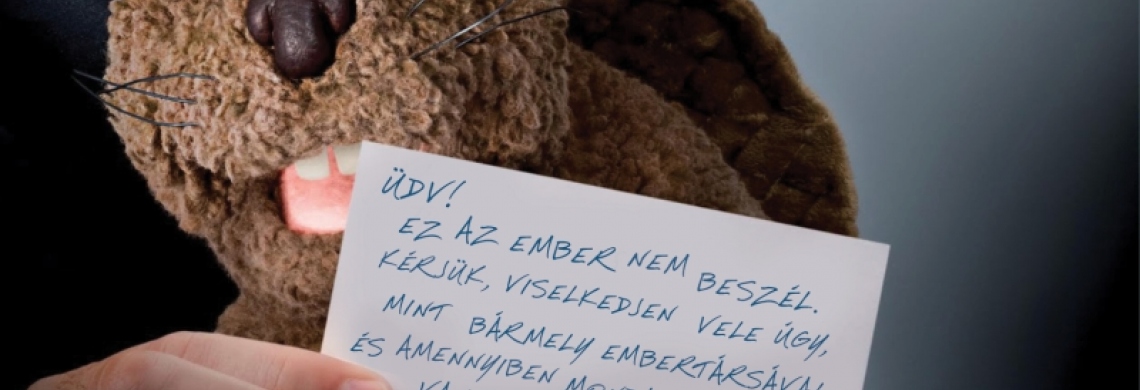 ÜDV!
EZ AZ EMBER NEM BESZÉL.
KÉRJÜK, VISELKEDJEN VELE ÚGY,
MINT BÁRMELY EMBERTÁRSÁVAL
ÉS AMENNYIBEN